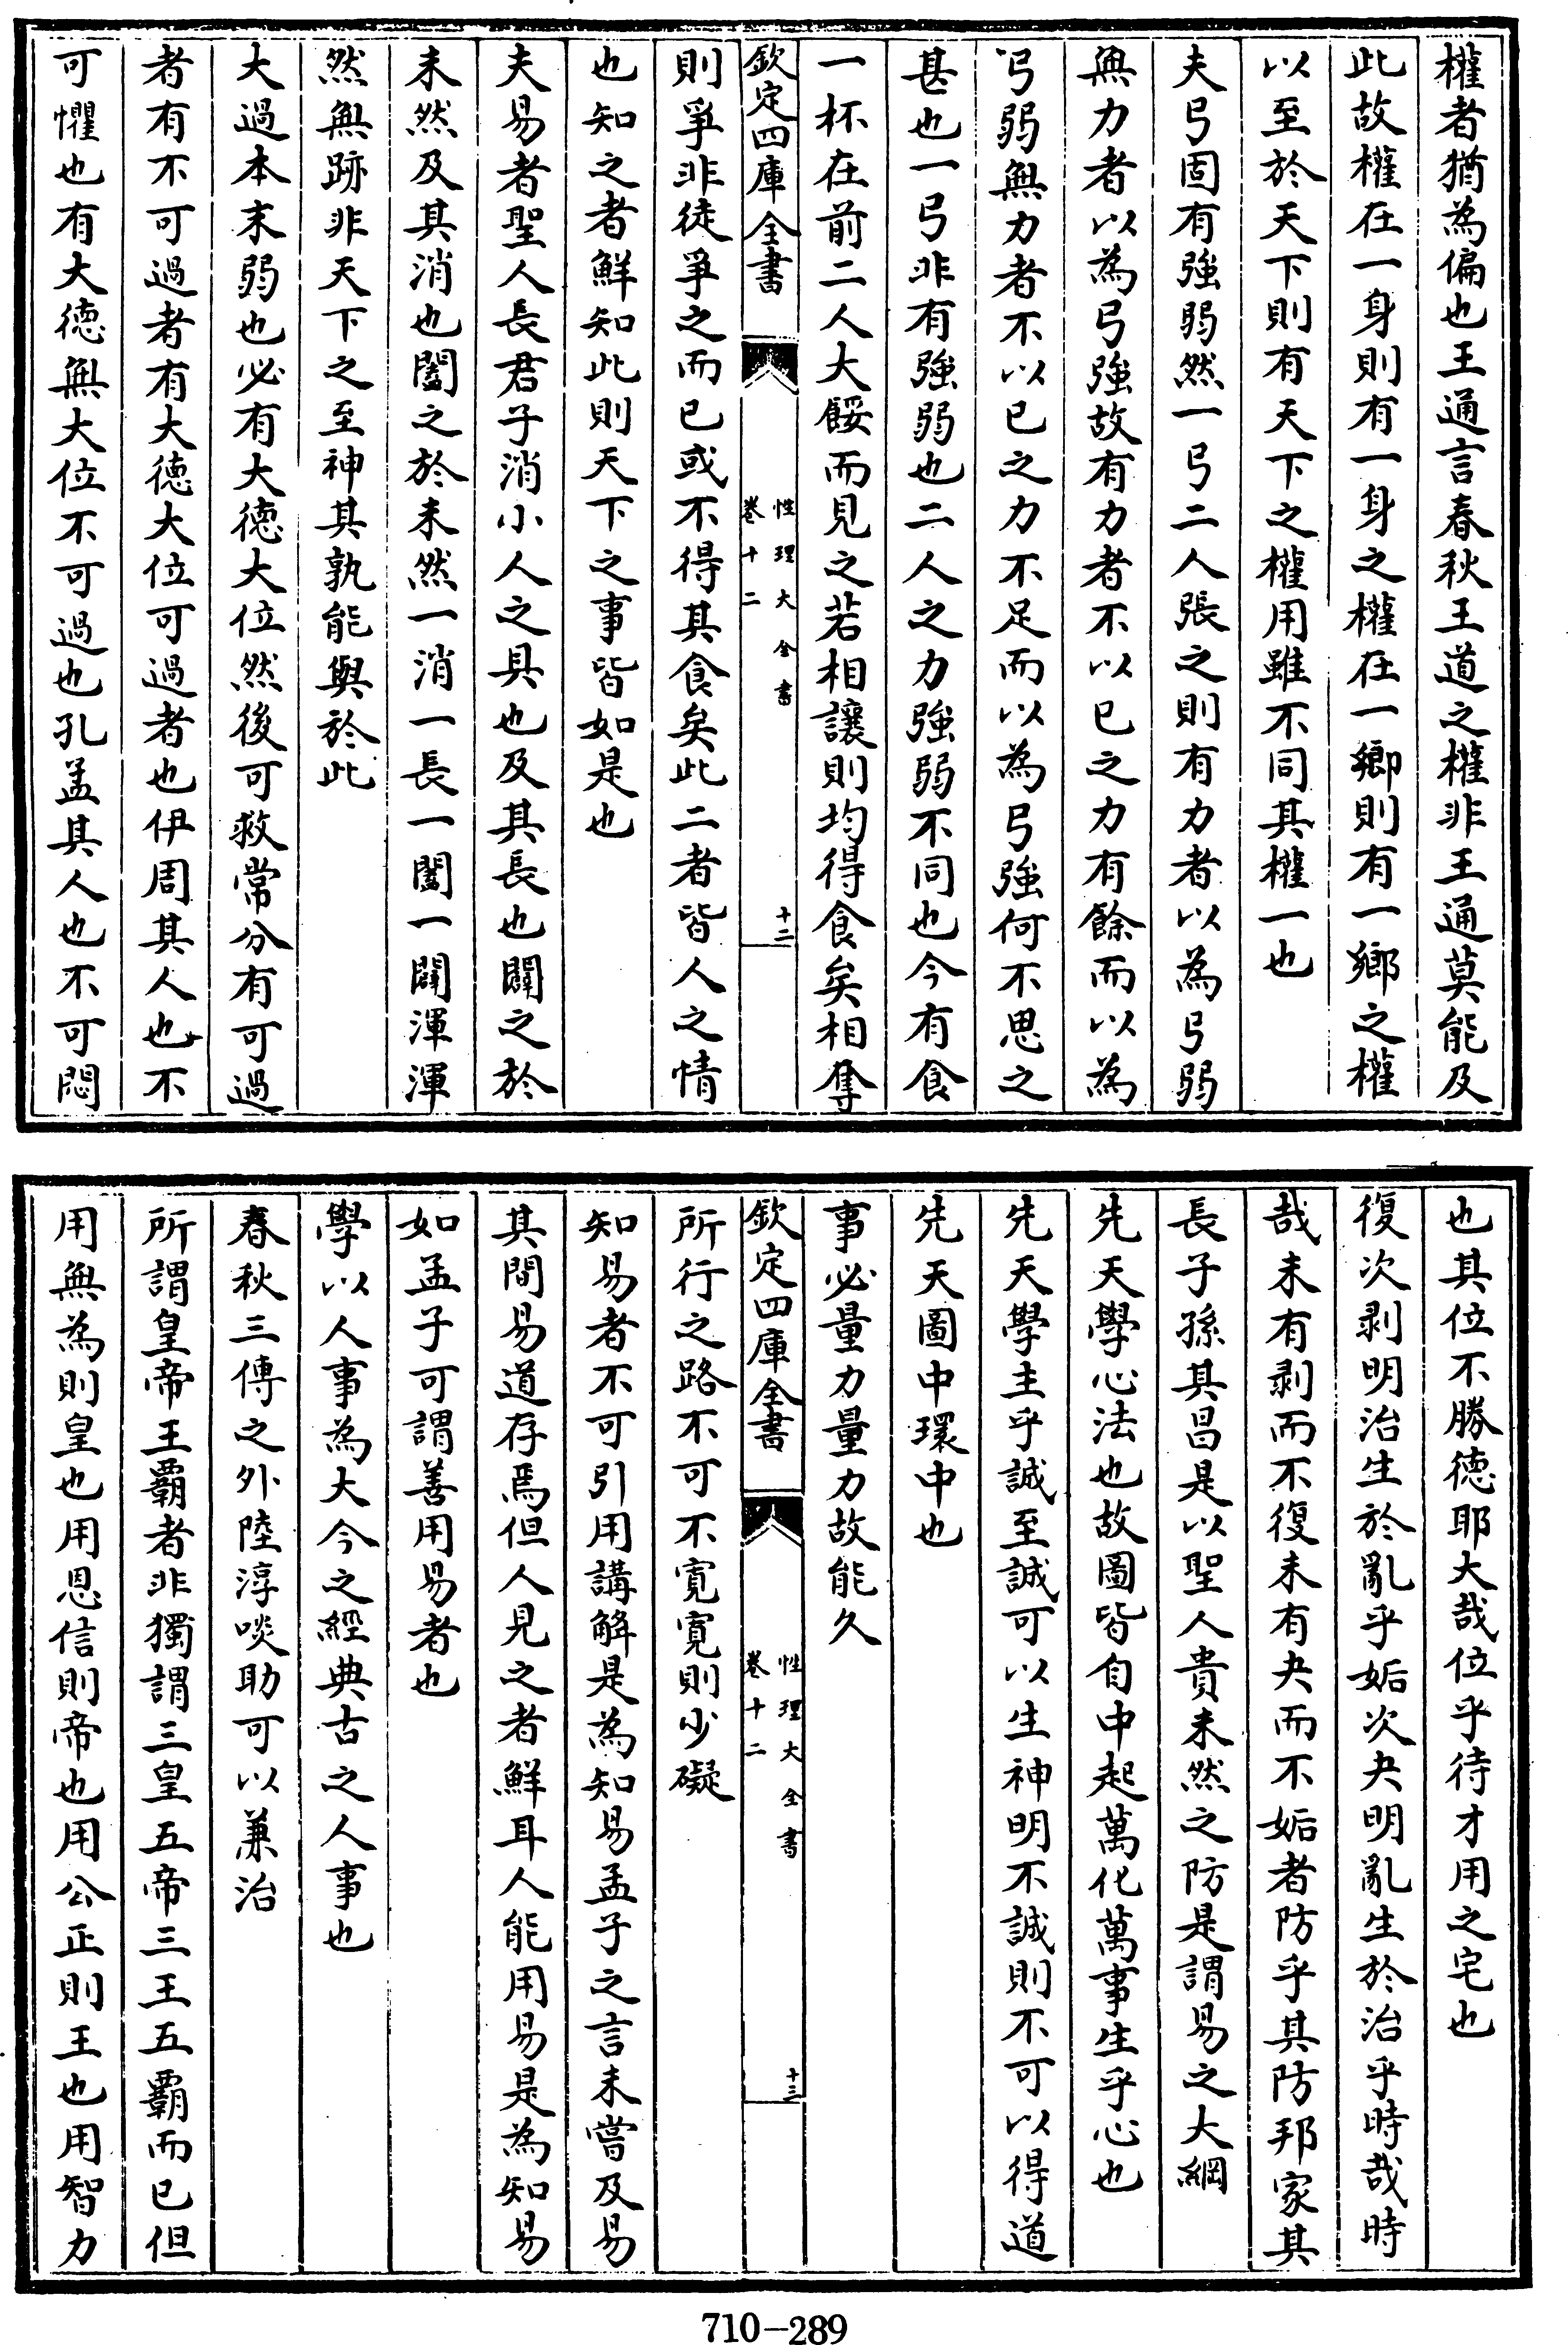 權者猶為偏也王通言春秋王道之權非王通莫能及
此故權在一身則有一身之權在一鄉則有一鄉之權
以至於天下則有天下之權用雖不同其權一也
夫弓固有強弱然一弓二人張之則有力者以為弓弱
無力者以為弓強故有力者不以已之力有餘而以為
弓弱無力者不以已之力不足而以為弓強何不思之
甚也一弓非有強弱也二人之力強弱不同也今有食
一杯在前二人大餒而見之若相讓則均得食矣相奪
欽定四庫全書
性理大全書
卷十二
十二
則爭非徒爭之而已或不得其食矣此二者皆人之情
也知之者鮮知此則天下之事皆如是也
夫易者聖人長君子消小人之具也及其長也闢之於
未然及其消也闔之於未然一消一長一闔一闢渾渾
然無跡非天下之至神其孰能與於此
大過本末弱也必有大德大位然後可救常分有可過
者有不可過者有大德大位可過者也伊周其人也不
可懼也有大德無大位不可過也孔孟其人也不可悶
也其位不勝德耶大哉位乎待才用之宅也
復次剥明治生於亂乎姤次夬明亂生於治乎時哉時
哉未有剥而不復未有夬而不姤者防乎其防邦家其
長子孫其昌是以聖人貴未然之防是謂易之大綱
先天學心法也故圖皆自中起萬化萬事生乎心也
先天學主乎誠至誠可以生神明不誠則不可以得道
先天圖中環中也
事必量力量力故能久
欽定四庫全書
性理大全書
卷十二
十三
所行之路不可不寛寛則少礙
知易者不可引用講解是為知易孟子之言未嘗及易
其間易道存焉但人見之者鮮耳人能用易是為知易
如孟子可謂善用易者也
學以人事為大今之經典古之人事也
春秋三傳之外陸淳啖助可以兼治
所謂皇帝王霸者非獨謂三皇五帝三王五霸而已但
用無為則皇也用恩信則帝也用公正則王也用智力
710-289